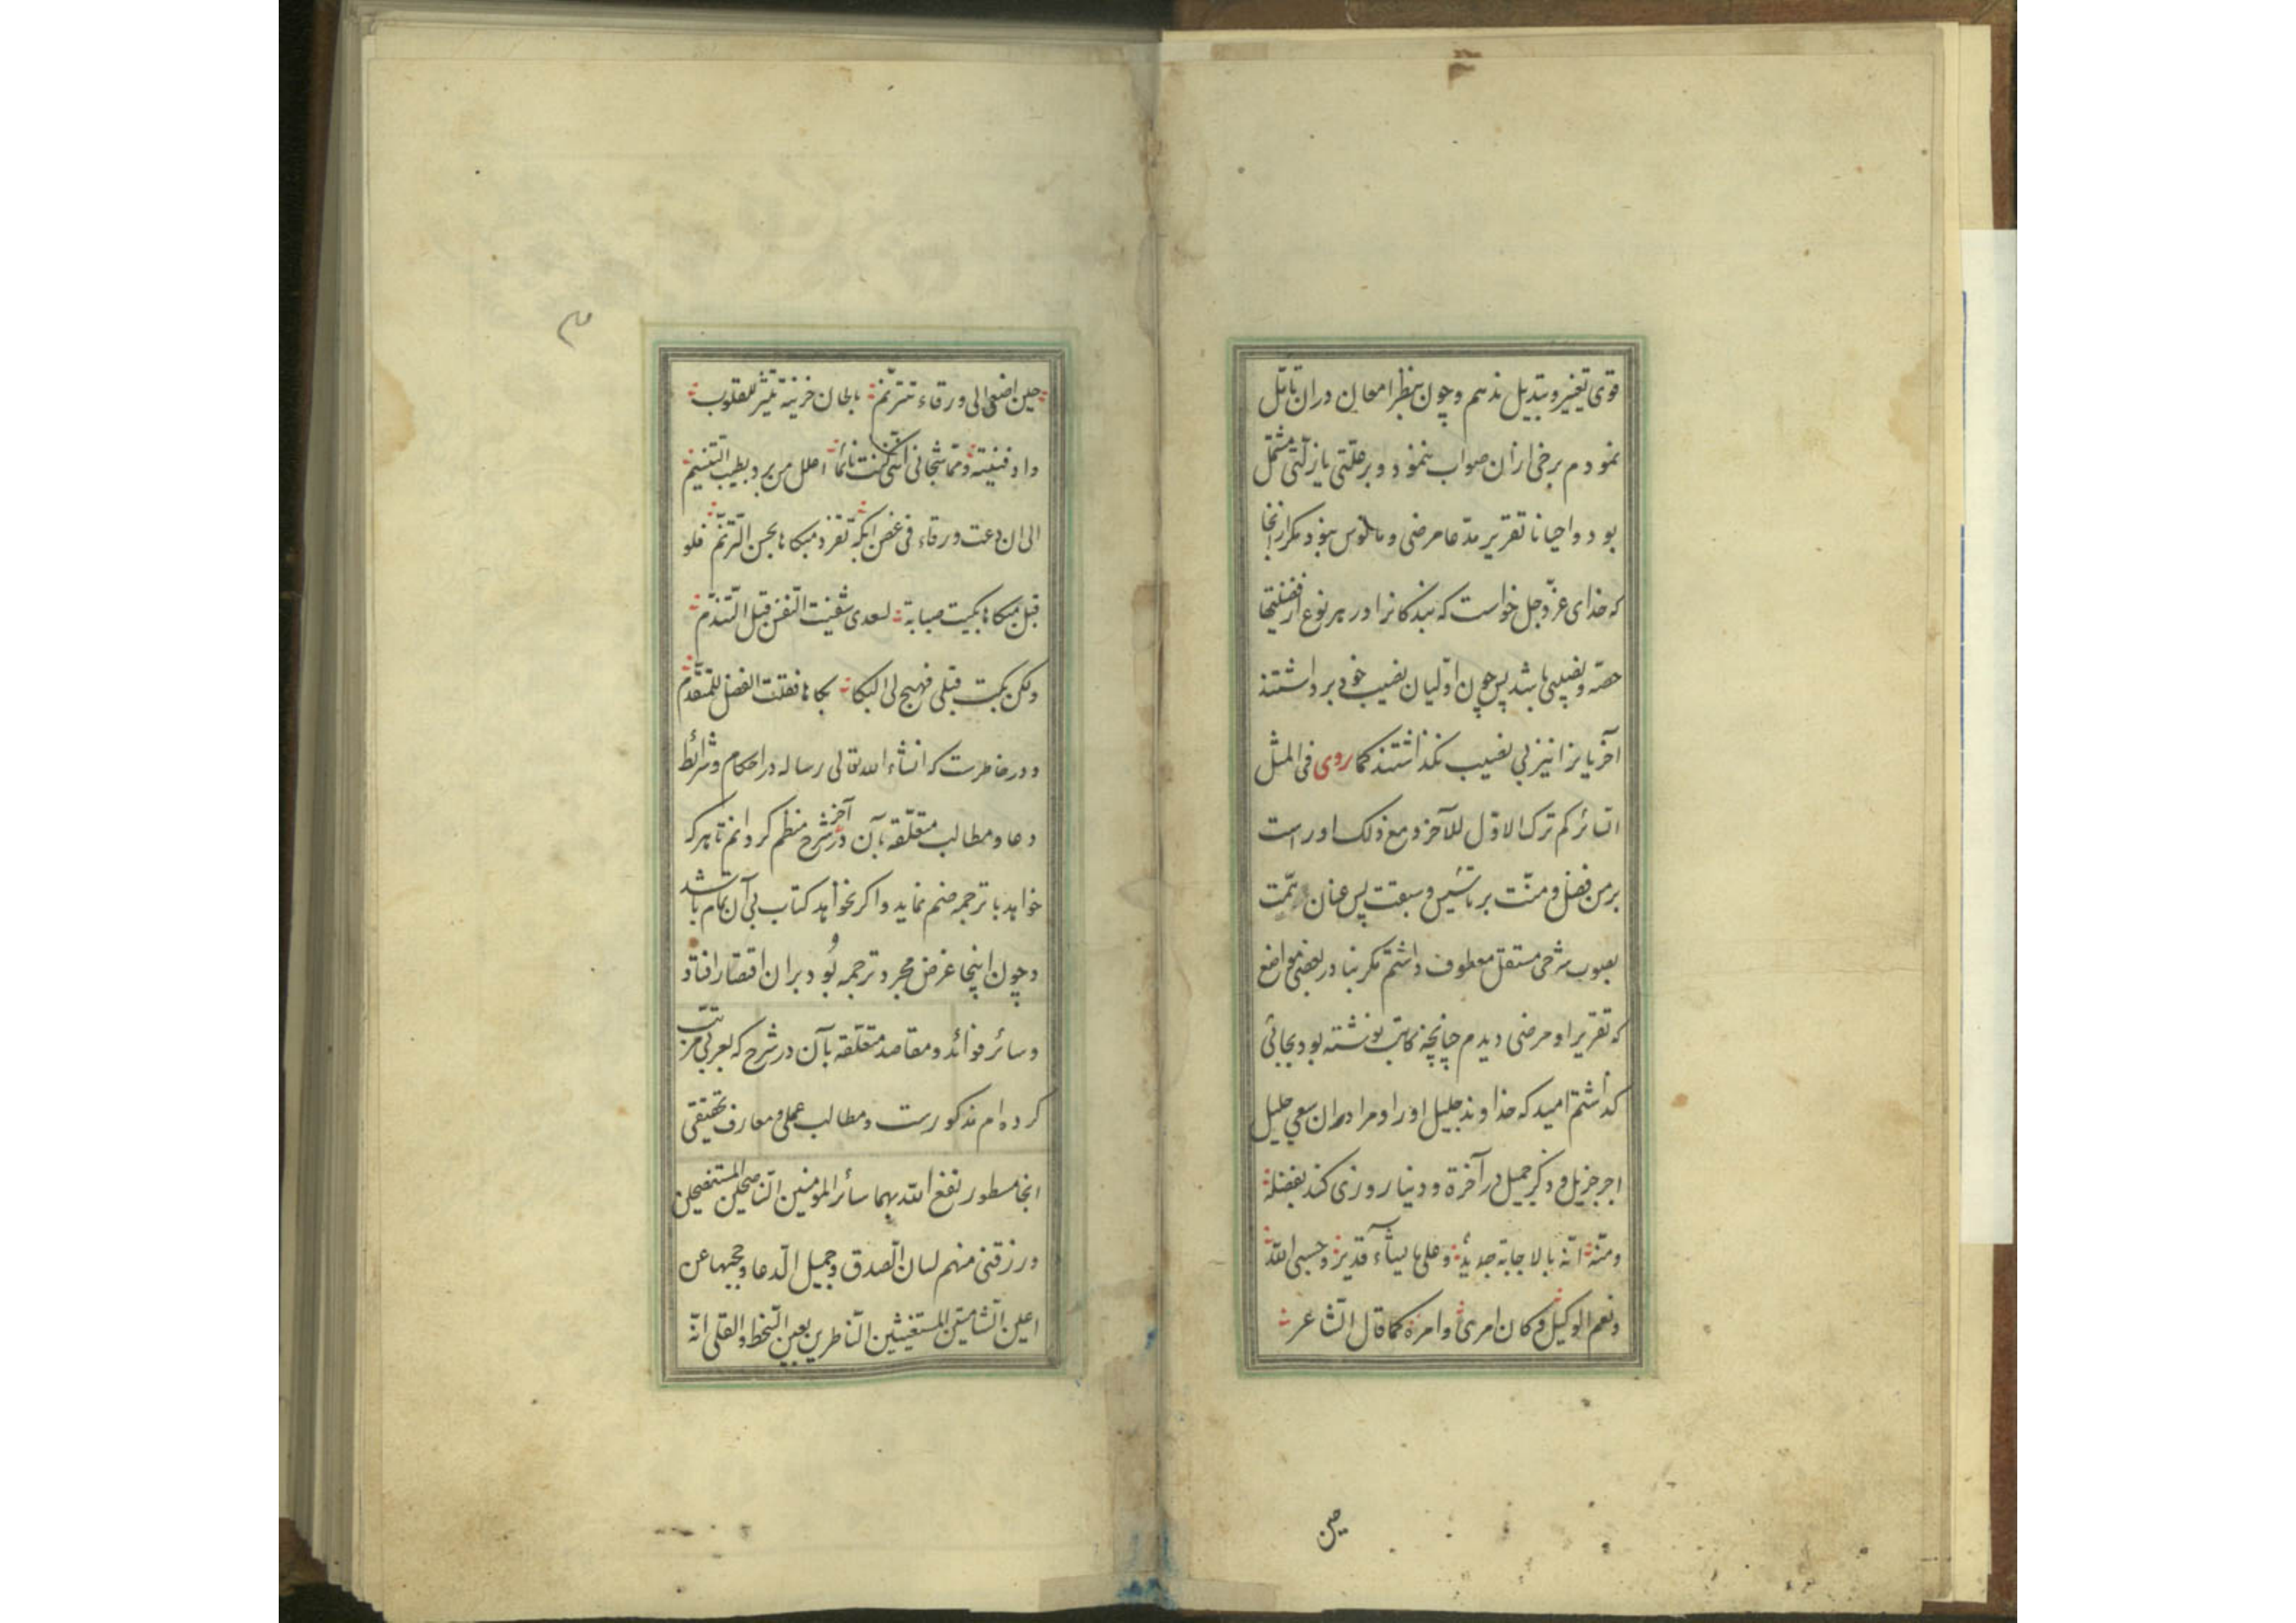 قوی تغییر و تبدیل ندهم و چون بنظر امعان دران تامّل
نمودم برخی ازان صواب ننمود و بر علّتی یا زلّتی مشتمل
بود و احیانا تقریر مدّعا مرضی و مانوس نبود مکرر انجا
که خدای عزّ و جل خواست که بندکانرا در هر نوع از فضیلتها
حصّه و نصیبی باشد پس چون اوّلیان نصیب خود برداشتند
آخریانرا نیز بی نصیب نکذاشتند کما روی فی المثل
السّائر کم ترک الاوّل للآخر و مع ذلک او راست
بر من فضل و منّت بر تاسیس و سبقت پس عنان همّت
بصوب شرحی مستقل معطوف داشتم مکر بنادر بعضی مواضع
که تقریر او مرضی دیدم چنانچه کاتب نوشته بود بجائی
کذاشتم امید که خداوند جلیل او را و مرا دران سعی جلیل
اجر جزیل و ذکر جمیل در آخرة و دنیا روزی کند بفضله
و منّه انّه بالاجابة جدیر و علی ما یشآء قدیر و حسبی اللّه
و نعم الوکیل و کان امری و امره کما قال الشّاعر
حین
حین اصغی الی ورقاء تترنّم بالحان حزینة تثیر للقلوب
داء دفینة و ممّا شجانی انّنی کنت نائما اعلل من برد بطیب التّنسیم
الی ان دعت ورقاء فی غصن ایکة تفرد مبکاها بحسن التّرنّم فلو
قبل مبکاها بکیت صبابة لسعدی شفیت النّفس قبل التّندّم
ولکن بکت قبلی فهیج لی البکا بکاها فقلت الفضل للمتقدّم
و در خاطرست که انشاء الله تعالی رساله در احکام و شرائط
دعا و مطالب متعلّقه بآن در آخر شرح منظم کردانم تا هر که
خواهد با ترجمه ضم نماید و اکر نخواهد کتاب بی آن تمام باشد
و چون اینجا غرض مجرد ترجمه بود و بران اقتصار افتاد
و سائر فوائد و مقاصد متعلّقه بآن در شرح که بعربی مرتب
کرده ام مذکورست و مطالب عملی و معارف تحقیقی
انجا مسطور نفع اللّه بهما سائر المؤمنین النّاصحین المستنصحین
و رزقنی منهم لسان الصّدق و جمیل الدّعا و حجبها عن
اعین الشّامتین المستغیثین النّاظرین بعین السّخط و القلی انّه